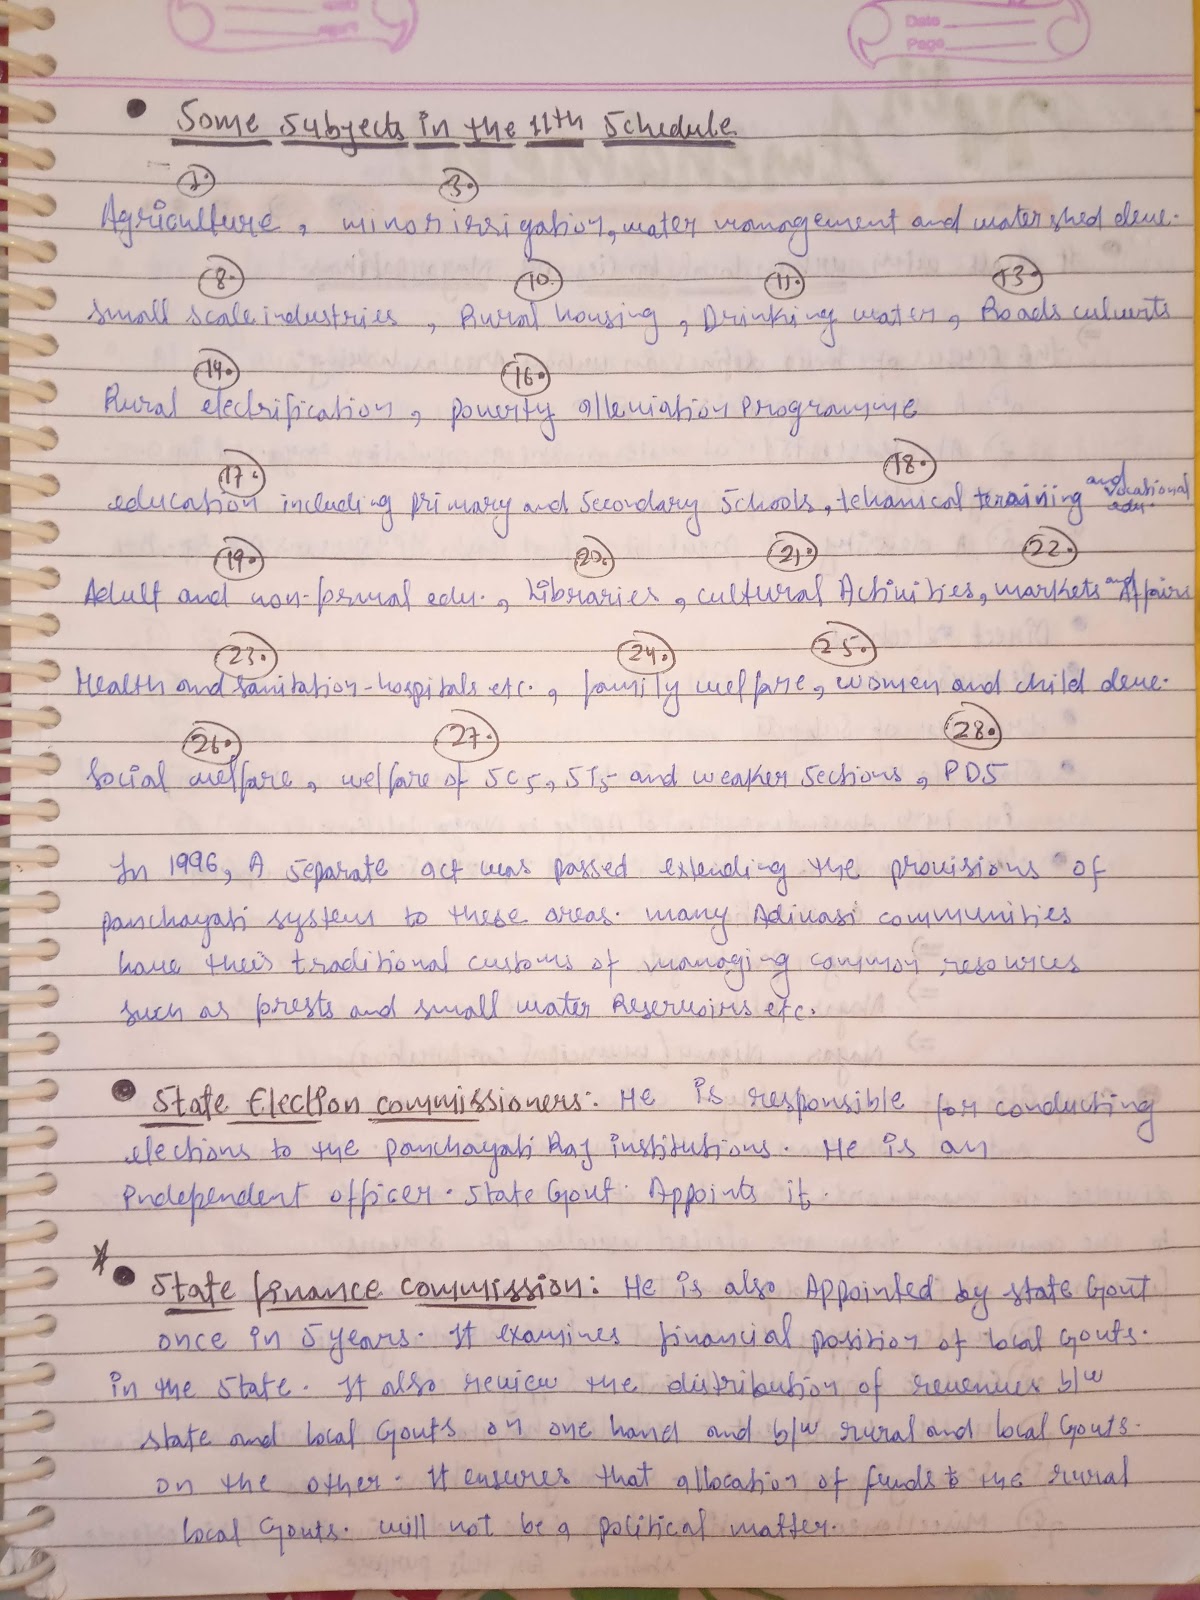 Date
Page
• Some Subjects in the 11th Schedule
1. 3.
Agriculture, minor irrigation, water management and water shed deve.
8. 10. 11. 13.
Small scale industries, Rural housing, Drinking water, Roads culverts
14. 16.
Rural electrification, poverty alleviation Programme
17. 18.
education including primary and Secondary Schools, tehanical teraining and vocational edu.
19. 20. 21. 22.
Adult and non-formal edu., Libraries, cultural Activities, markets and Affairs
23. 24. 25.
Health and Sanitation-hospitals etc., family welfare, women and child deve.
26. 27. 28.
Social welfare, welfare of SCs, STs and weaker Sections, PDS
In 1996, A separate act was passed extending the provisions of
panchayati system to these areas. many Adivasi communities
have their traditional customs of managing common resources
such as forests and small water Reservoirs etc.
• State Election commissioners: He is responsible for conducting
elections to the panchayati Raj institutions. He is an
Independent officer. State Govt. Appoints it.
* • State finance commission: He is also Appointed by state Govt
once in 5 years. It examines financial position of local Govts.
in the State. It also review the distribution of revenues b/w
state and local Govts on one hand and b/w rural and local Govts.
on the other. It ensures that allocation of funds to the rural
local Govts. will not be a political matter.